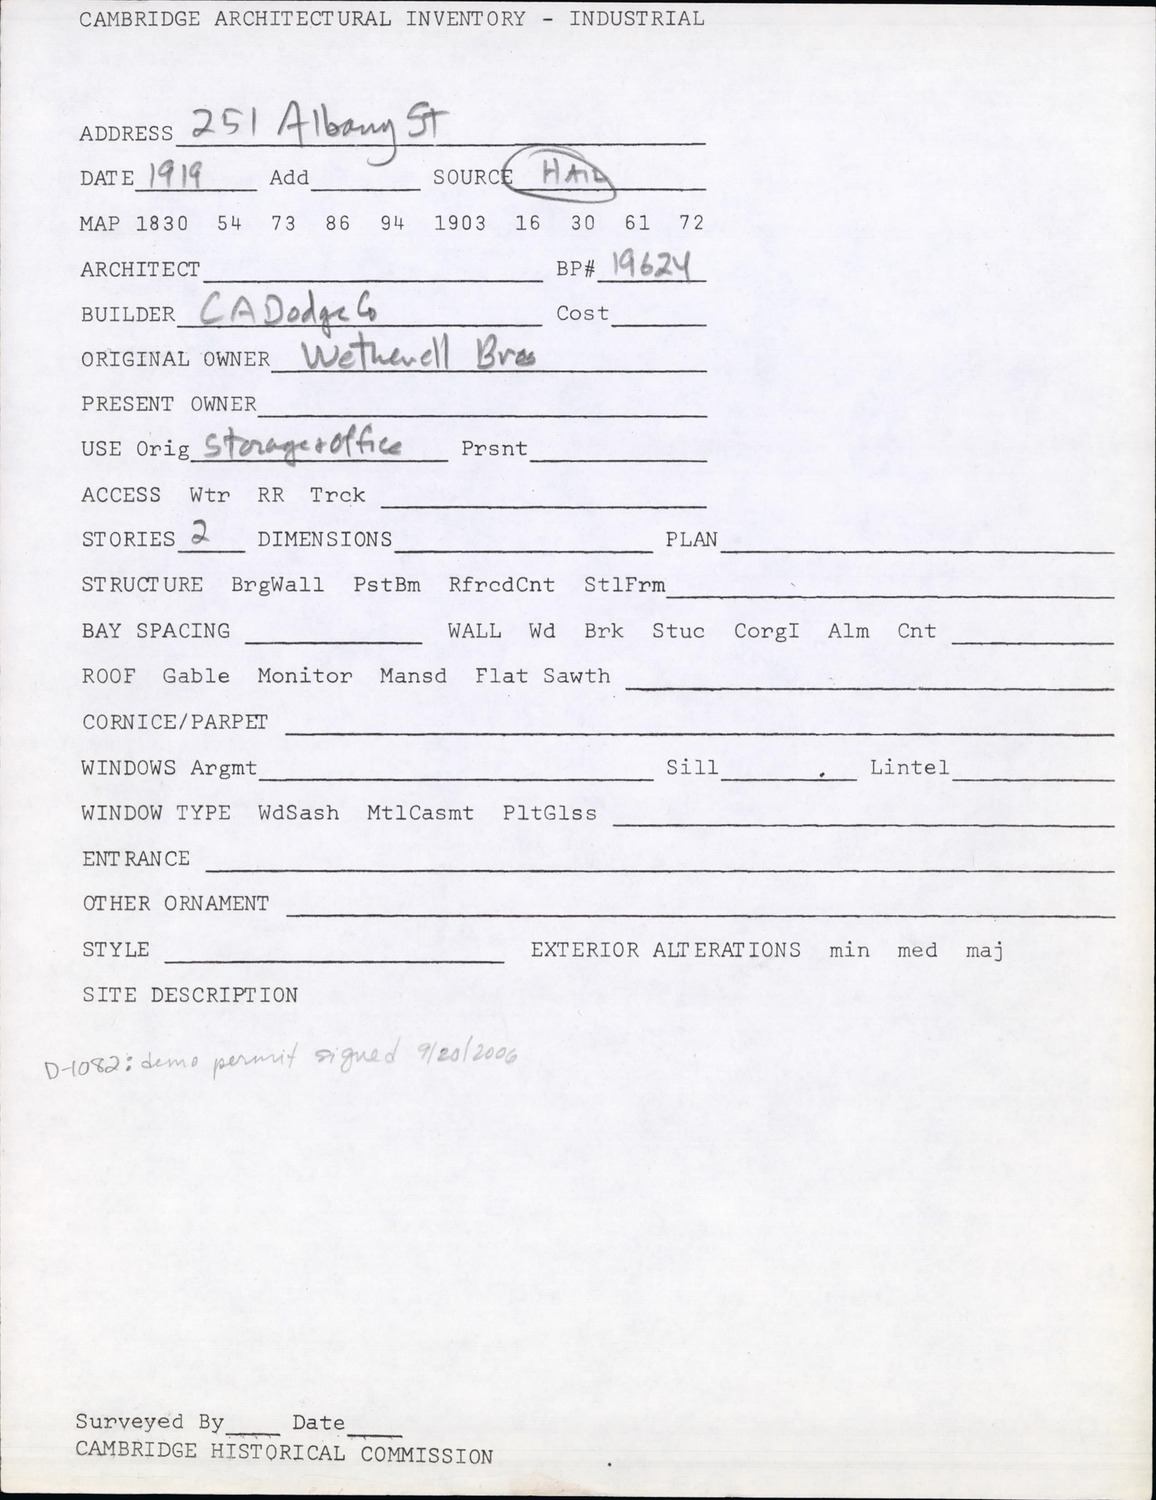 CAMBRIDGE ARCHITECTURAL INVENTORY - INDUSTRIAL
ADDRESS 251 Albany St
DATE 1919 Add SOURCE
MAP 1830 54 73 86 94 1903 16 30 61 72
ARCHITECT BP# 19624
BUILDER CA Dodge Co Cost
ORIGINAL OWNER Wetherell Bros
PRESENT OWNER
USE Orig Storage + Office Prsnt
ACCESS Wtr RR Trck
STORIES 2 DIMENSIONS PLAN
STRUCTURE BrgWall PstBm RfrcdCnt StlFrm
BAY SPACING WALL Wd Brk Stuc CorgI Alm Cnt
ROOF Gable Monitor Mansd Flat Sawth
CORNICE/PARPET
WINDOWS Argmt Sill Lintel
WINDOW TYPE WdSash MtlCasmt PltGlss
ENTRANCE
OTHER ORNAMENT
STYLE EXTERIOR ALTERATIONS min med maj
SITE DESCRIPTION
D-1082: demo permit signed 9/20/2006
Surveyed By Date
CAMBRIDGE HISTORICAL COMMISSION